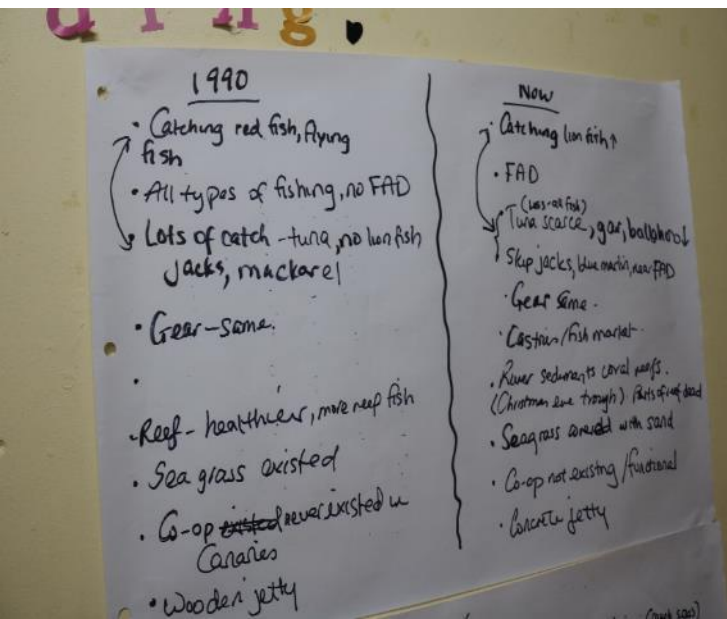 ding.
1990
• Catching red fish, flying
fish
• All types of fishing, no FAD
• Lots of catch - tuna, no lionfish
jacks, mackarel
• Gear - same.
•
• Reef - healthier, more reef fish
• Sea grass existed
• Co-op existed never existed in
Canaries
• Wooden jetty
Now
• Catching lionfish ↑
• FAD
(Less-all fish)
• Tuna scarce, gar, ballahoo ↓
Skip jacks, blue marlin, near FAD
• Gear same.
• Castries/fish market.
• River sediments coral reefs.
(Christmas eve trough) Parts of reef dead
• Seagrass covered with sand
• Co-op not existing/functional
• Concrete jetty